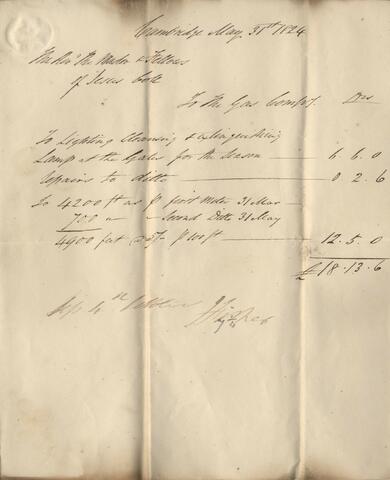 Cambridge May 31st 1824
The Revd the Master & Fellows
of Jesus Coll
To the Gas Compy. Drs
To Lighting Cleansing & extinguishing
Lamp at the Gates for the Season — 6 6 0
repairs to ditto — 0 2 6
To 4200 ft as pr first Meter 31 Mar
700 " — Second Ditto 31 May
4900 feet @ pr 100 ft — 12 . 5 . 0
£ 18 . 13 . 6